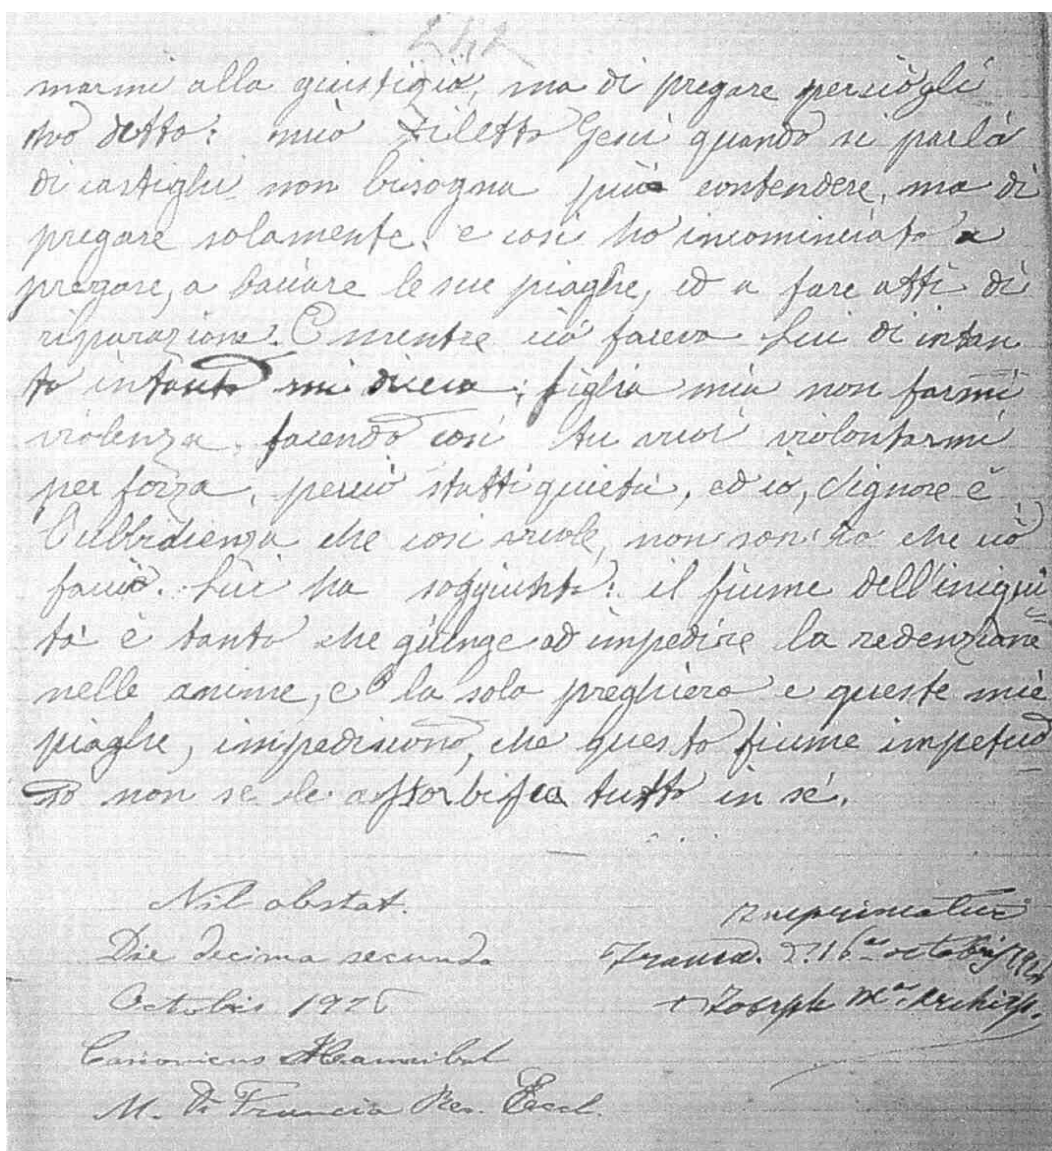 242
marmi alla giustizia, ma di pregare perciò gli
ho detto: mio diletto Gesù quando si parla
di castighi non bisogna più contendere, ma di
pregare solamente. e così ho incominciato a
pregare, a baciare le sue piaghe, ed a fare atti di
riparazione. E mentre ciò faceva Lui di intan
to intanto mi diceva: figlia mia non farmi
violenza, facendo così tu vuoi violentarmi
per forza, perciò statti quieta, ed io, Signore è
l'ubbidienza che così vuole, non son io che ciò
faccio. Lui ha soggiunto: il fiume dell'iniqui
tà è tanto che giunge ad impedire la redenzione
nelle anime, e la sola preghiera e queste mie
piaghe, impediscono, che questo fiume impetuo
so non se le assorbisca tutto in sé.
Nil obstat.
Die decima secunda
Octobris 1926
Canonicus Hannibal
M. Di Francia Rev. Eccl.
Imprimatur
16 octobris 1926
+ Joseph M. Archiep.